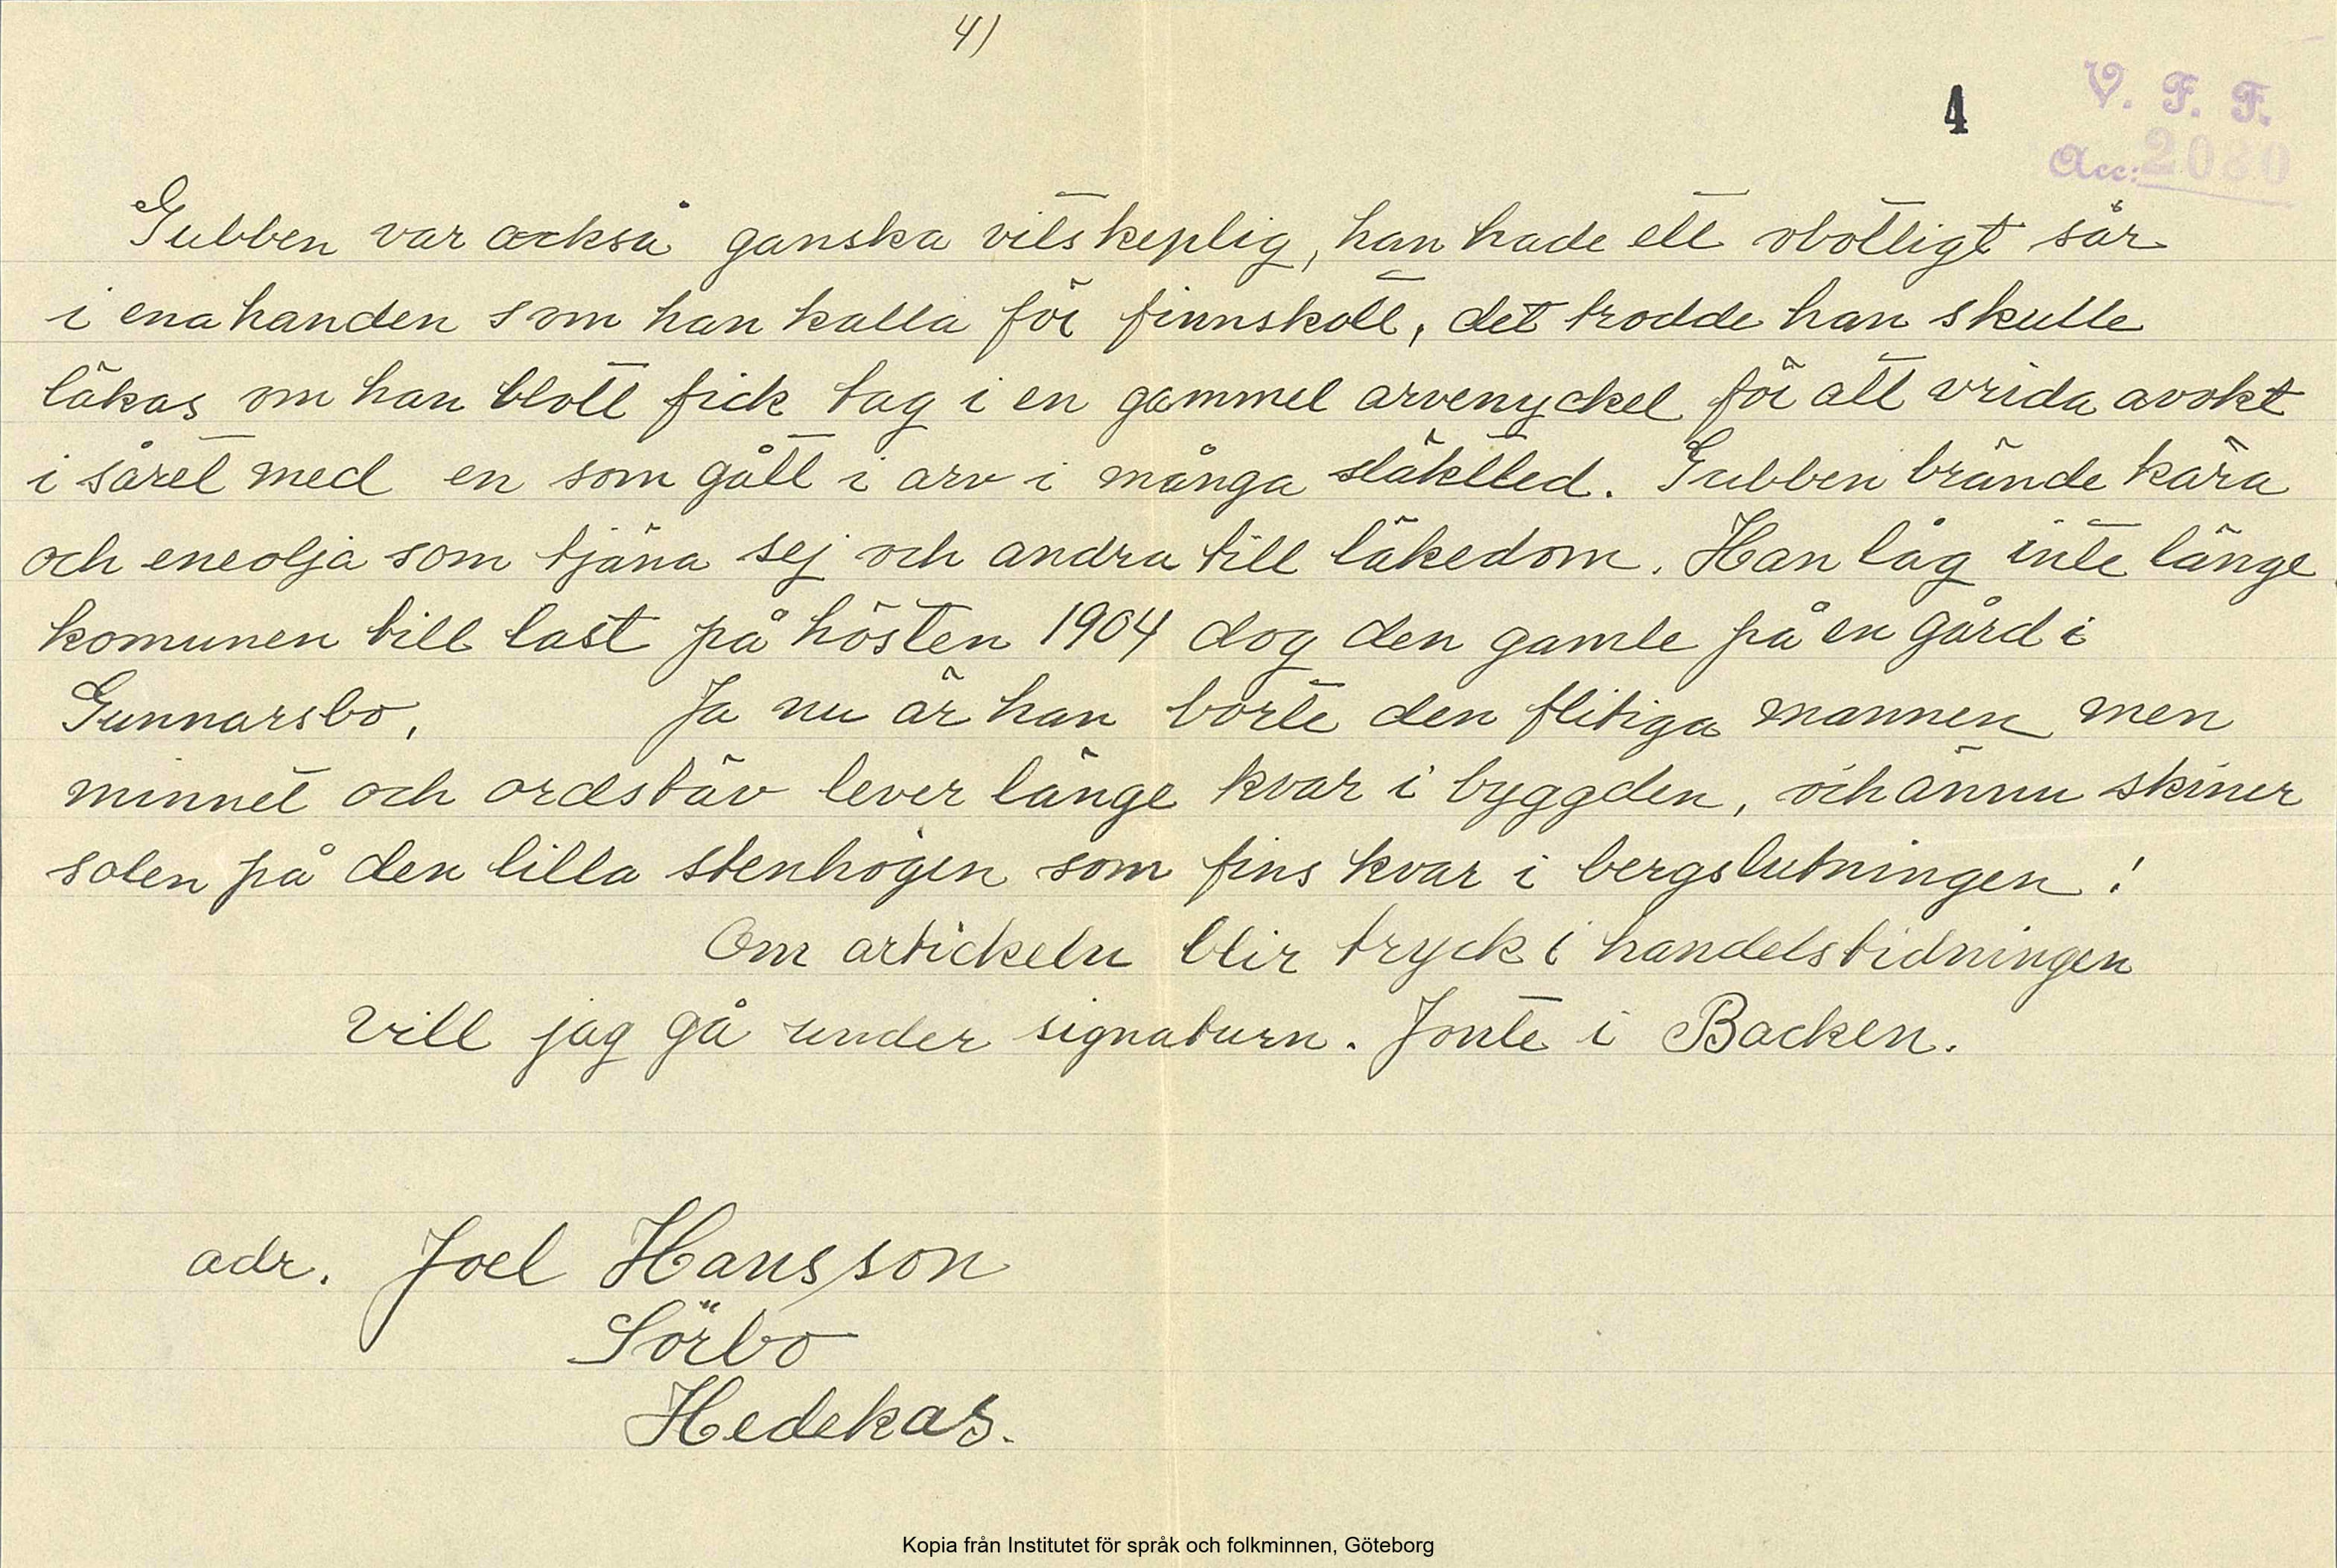 4)
4
V. F. F.
Acc: 2080
Gubben var också ganska vitskeplig, han hade ett obotligt sår
i ena handen som han kalla för finnskott, det trodde han skulle
läkas om han blott fick tag i en gammel arvenyckel för att vrida avokt
i såret med en som gått i arv i många släktled. Gubben brände kära
och eneolja som tjäna sej och andra till läkedom. Han låg inte länge
komunen till last på hösten 1904 dog den gamle på en gård i
Gunnarsbo. Ja nu är han borte den flitiga mannen men
minnet och ordstäv lever länge kvar i byggden, och ännu skiner
solen på den lilla stenhögen som fins kvar i bergslutningen!
Om artickeln blir tryck i handelstidningen
vill jag gå under signaturn. Jonte i Backen.
adr. Joel Hansson
Sörbo
Hedekas.
Kopia från Institutet för språk och folkminnen, Göteborg